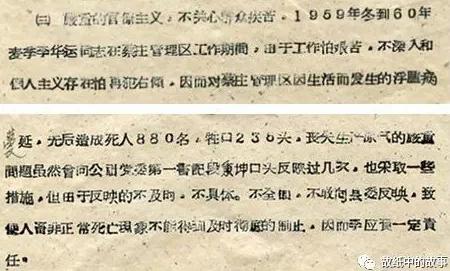 ㈢ 严重的官僚主义，不关心群众疾苦。1959年冬到60年
麦季李华运同志在蔡庄管理区工作期間，由于工作怕艰苦，不深入和
個人主义存在怕再犯右傾，因而对蔡庄管理区因生活而发生的浮腫病
蔓延，先后造成死人880名，牲口236头，丧失生产原气的严重
問題虽然曾向公社党委第一書記段坤口头反映过几次，也采取一些
措施，但由于反映的不及时，不具体。不全面，不敢向县委反映，致
使人畜非正常死亡現象不能得到及时彻底的制止，因而李应负一定責
任。
故纸中的故事